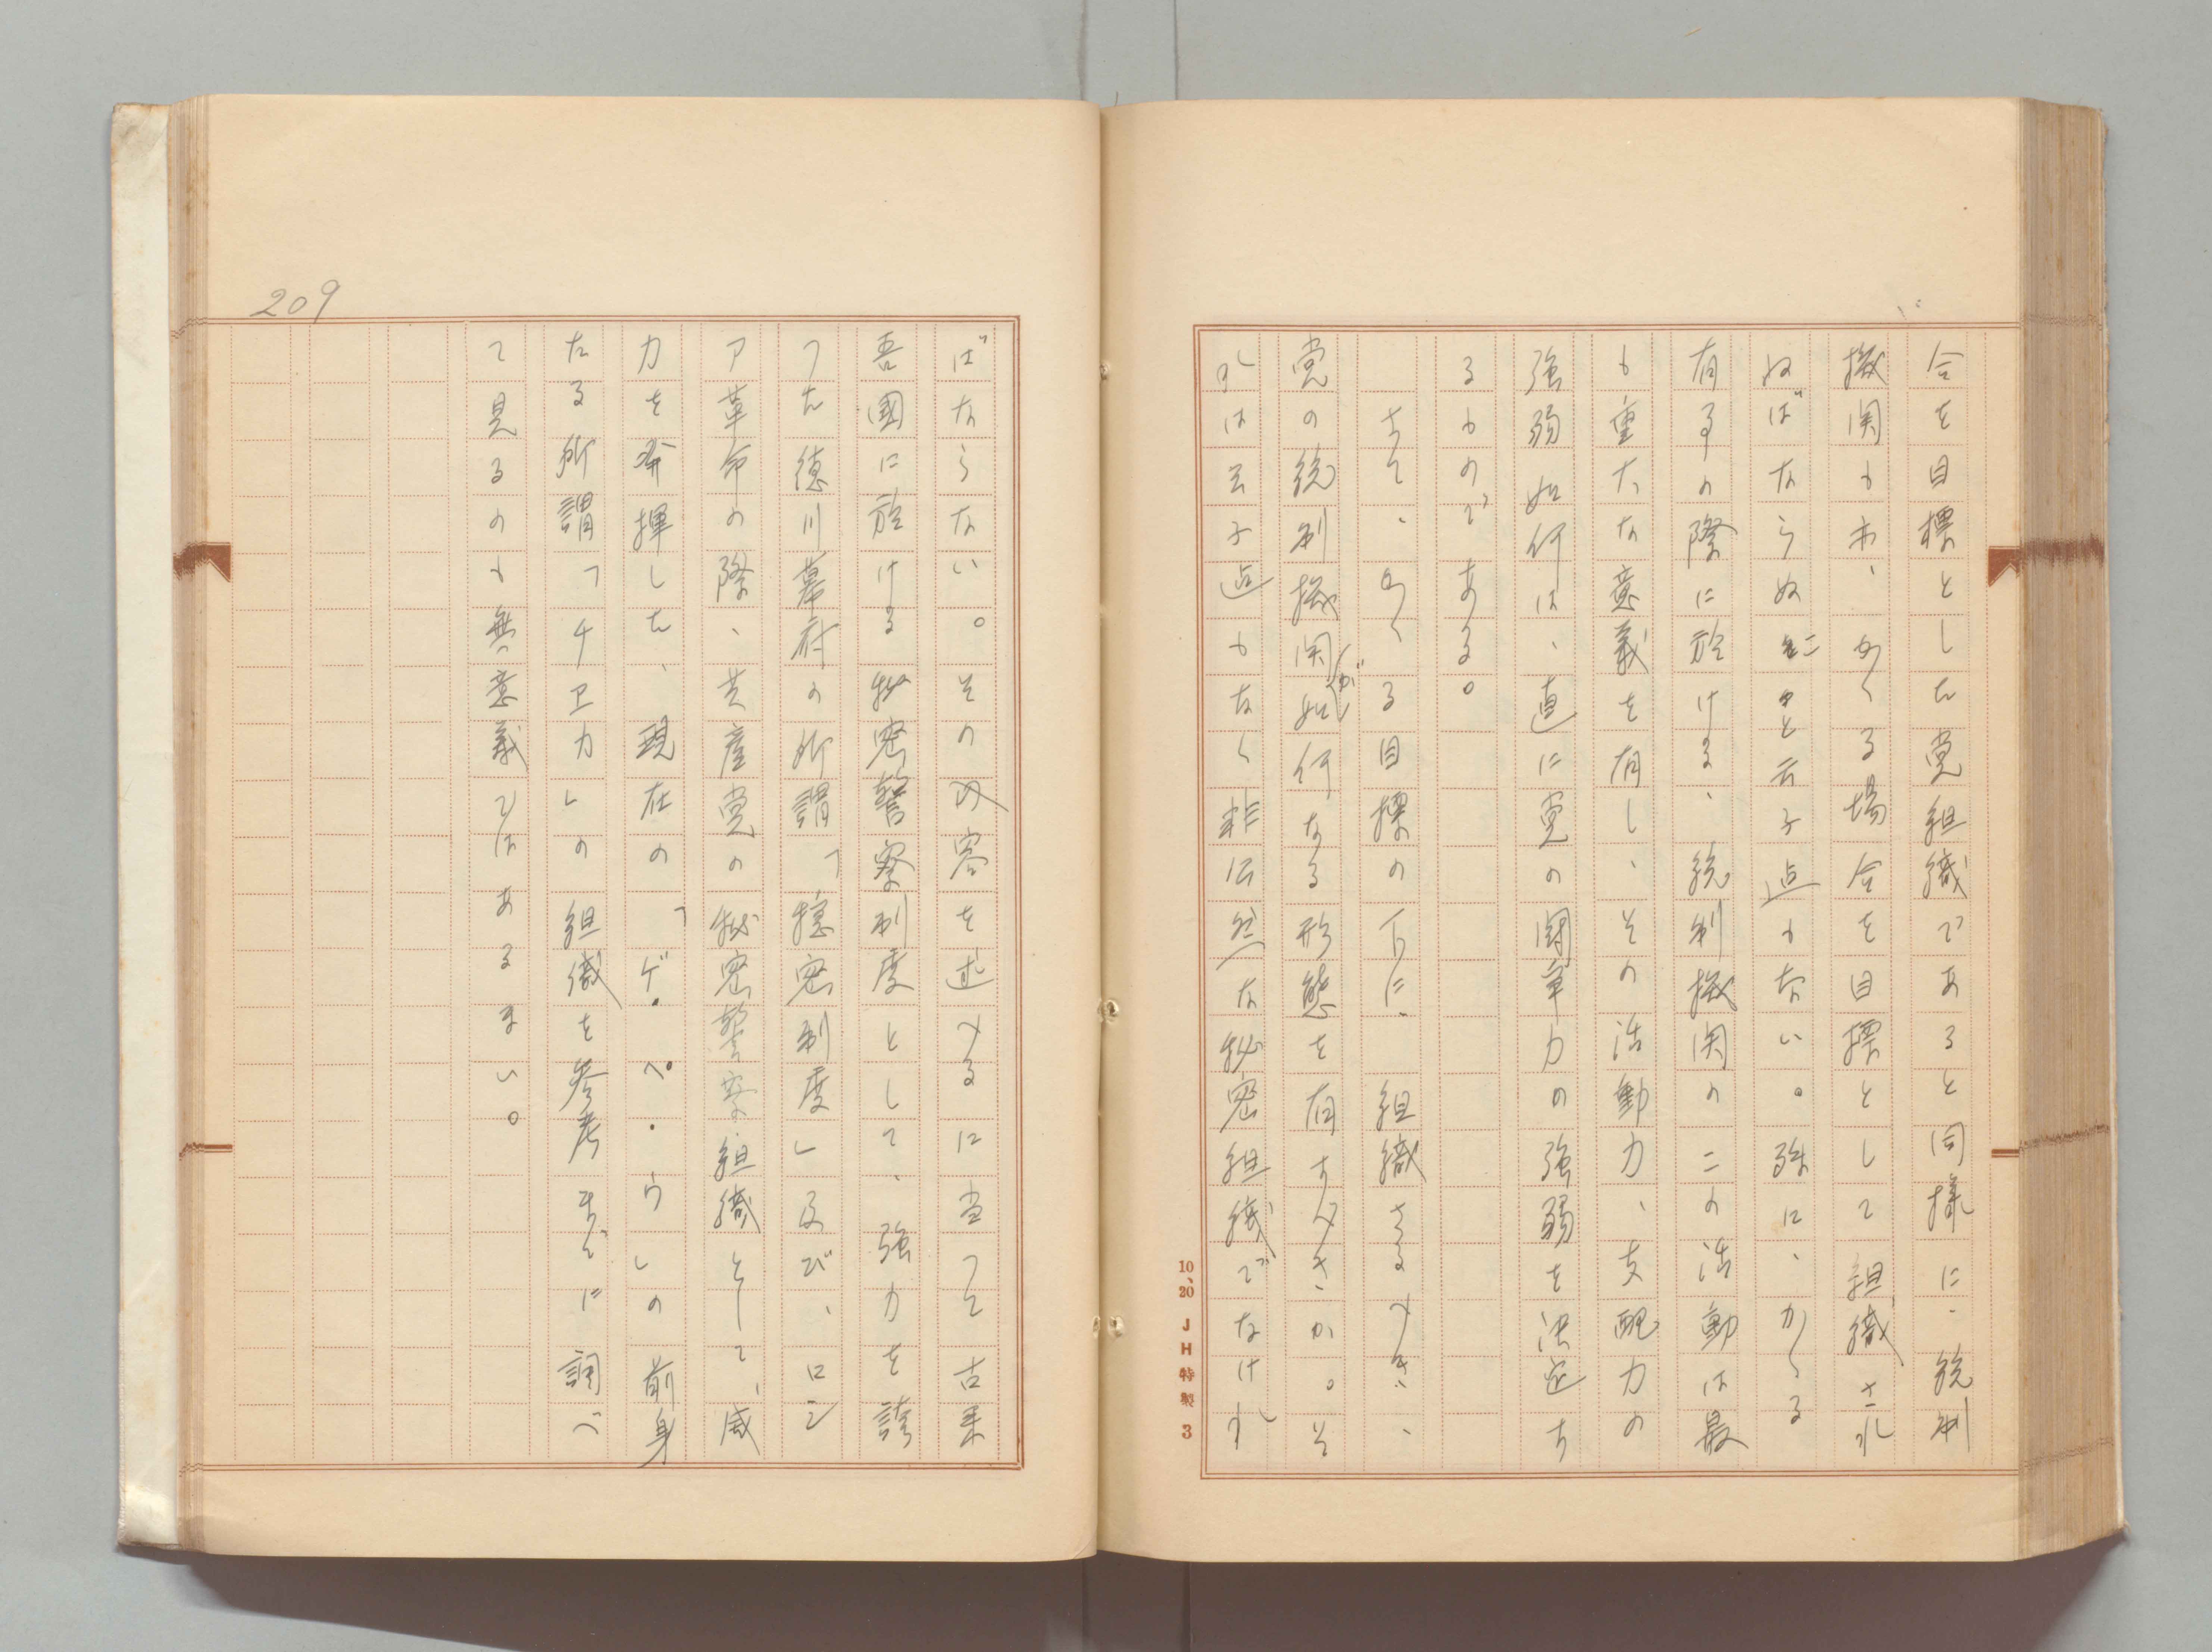 合を目標とした党組織であると同様に、統制
機関も亦、かくる場合を目標として組織され
ぬばならぬこと云ふ迄もない。殊に、かゝる
有事の際に於ける、統制機関のこの活動は最
も重大な意義を有し、その活動力、支配力の
強弱如何は、直に党の闘争力の強弱を決定す
るものである。
さて、かくる目標の下に組織さるべき、
党の統制機関が如何なる形態を有すべきか。そ
れは云ふ迄もなく非公然な秘密組織でなけれ
10、20 JH特製 3
209
ばならない。その内容を述べるに当つて古来
吾國に於ける秘密警察制度として、強力を誇
つた徳川幕府の所謂「穏密制度」及び、ロシ
ア革命の際、共産党の秘密警察組織として、威
力を発揮した、現在の「ゲ・ペ・ウ」の前身
たる所謂「チェカ」の組織を参考までに調べ
て見るのも無意義ではあるまい。